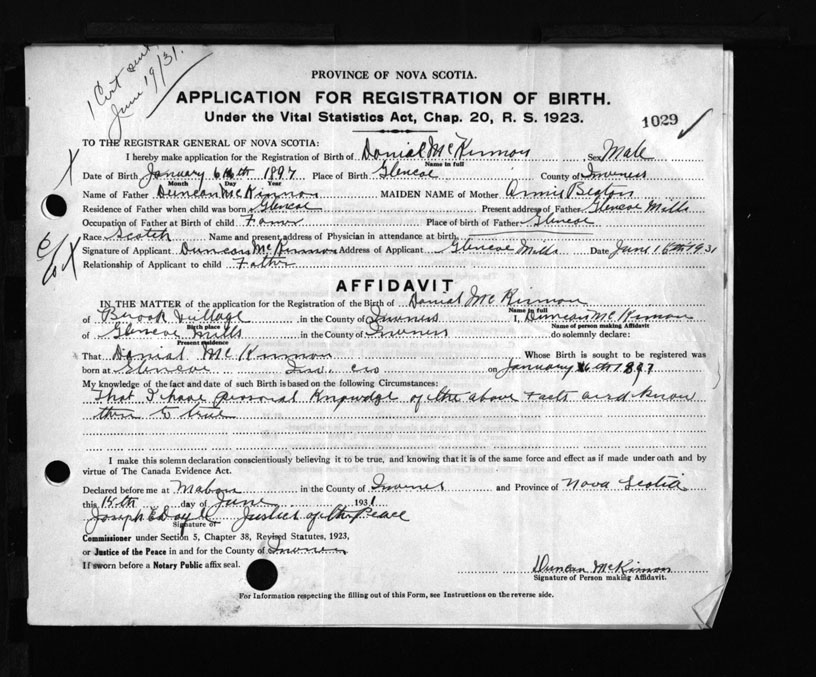 1 Cert sent
June 19/31.
PROVINCE OF NOVA SCOTIA.
APPLICATION FOR REGISTRATION OF BIRTH.
Under the Vital Statistics Act, Chap. 20, R. S. 1923.
1029
TO THE REGISTRAR GENERAL OF NOVA SCOTIA:
I hereby make application for the Registration of Birth of Danial McKinnon Sex Male
Name in full
Date of Birth January 16th 1897 Place of Birth Glencoe County of Inverness
Month Day Year
Name of Father Duncan McKinnon MAIDEN NAME of Mother Annie Beaton
Residence of Father when child was born Glencoe Present address of Father Glencoe Mills
Occupation of Father at Birth of child Place of birth of Father Glencoe
Race Scotch Name and present address of Physician in attendance at birth
Signature of Applicant Duncan McKinnon Address of Applicant Glencoe Mills Date June 16th 1931
Relationship of Applicant to child Father
AFFIDAVIT
IN THE MATTER of the application for the Registration of the Birth of Danial McKinnon
Name in full
of Brook Village in the County of Inverness I, Duncan McKinnon
Birth place Name of person making Affidavit
of Glencoe Mills in the County of Inverness do solemnly declare:
Present residence
That Danial McKinnon Whose Birth is sought to be registered was
born at Glencoe Inv. Co on January 16th 1897
My knowledge of the fact and date of such Birth is based on the following Circumstances:
That I have personal Knowledge of the above facts and know
them to true
I make this solemn declaration conscientiously believing it to be true, and knowing that it is of the same force and effect as if made under oath and by
virtue of The Canada Evidence Act.
Declared before me at Mabou in the County of Inverness and Province of Nova Scotia
this 15th day of June 1931
Joseph E Doyle Justice of the Peace
Signature of
Commissioner under Section 5, Chapter 38, Revised Statutes, 1923,
or Justice of the Peace in and for the County of Inverness
If sworn before a Notary Public affix seal.
Duncan McKinnon
Signature of Person making Affidavit.
For Information respecting the filling out of this Form, see Instructions on the reverse side.